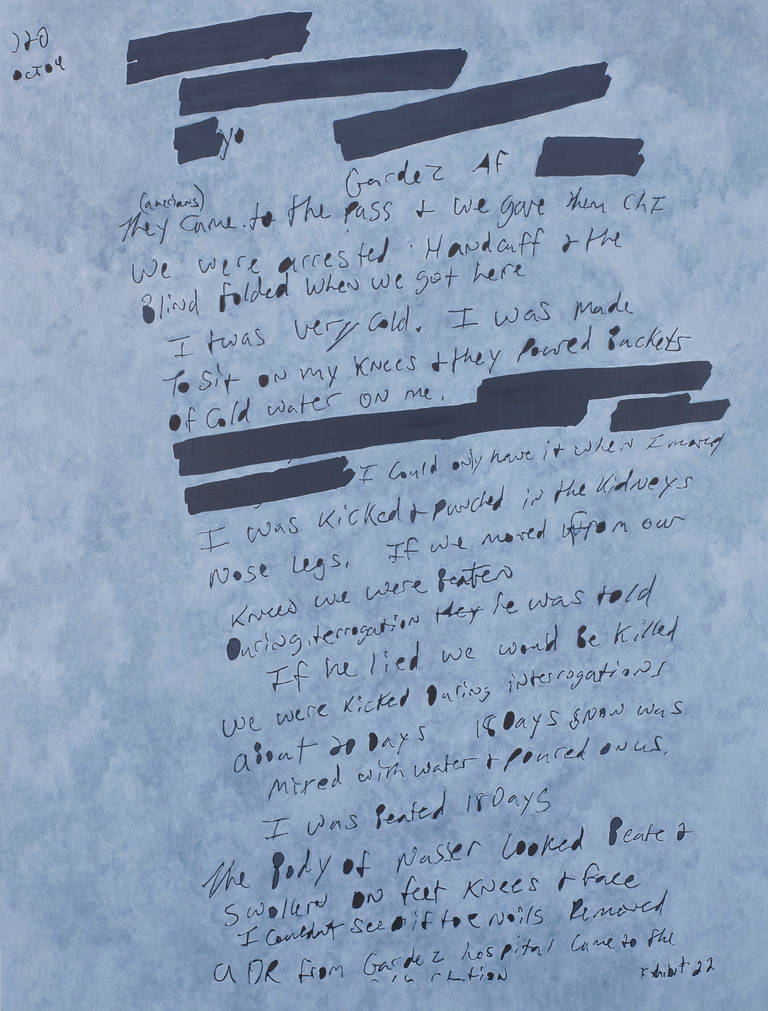 Oct 04
yo
Gardez Af
(americans)
They came to the pass & we gave them chI
We were arrested. Handcuff & the
Blind folded when we got here
I twas very cold. I was made
To sit on my knees & they poured Buckets
Of cold water on me.
I could only have it when I moved
I was kicked & punched in the kidneys
Nose Legs. If we moved from our
knees we were Beaten
During terrogation they he was told
If he lied we would Be killed
We were kicked During interrogations
About 20 Days 18 Days snow was
Mixed with water & poured on us.
I was Beated 18 Days
The Body of Nasser Looked Beate &
Swollern on feet knees & face
I couldn't see if toe Nails Removed
a DR from Gardez hospital came to the
Exhibit 22